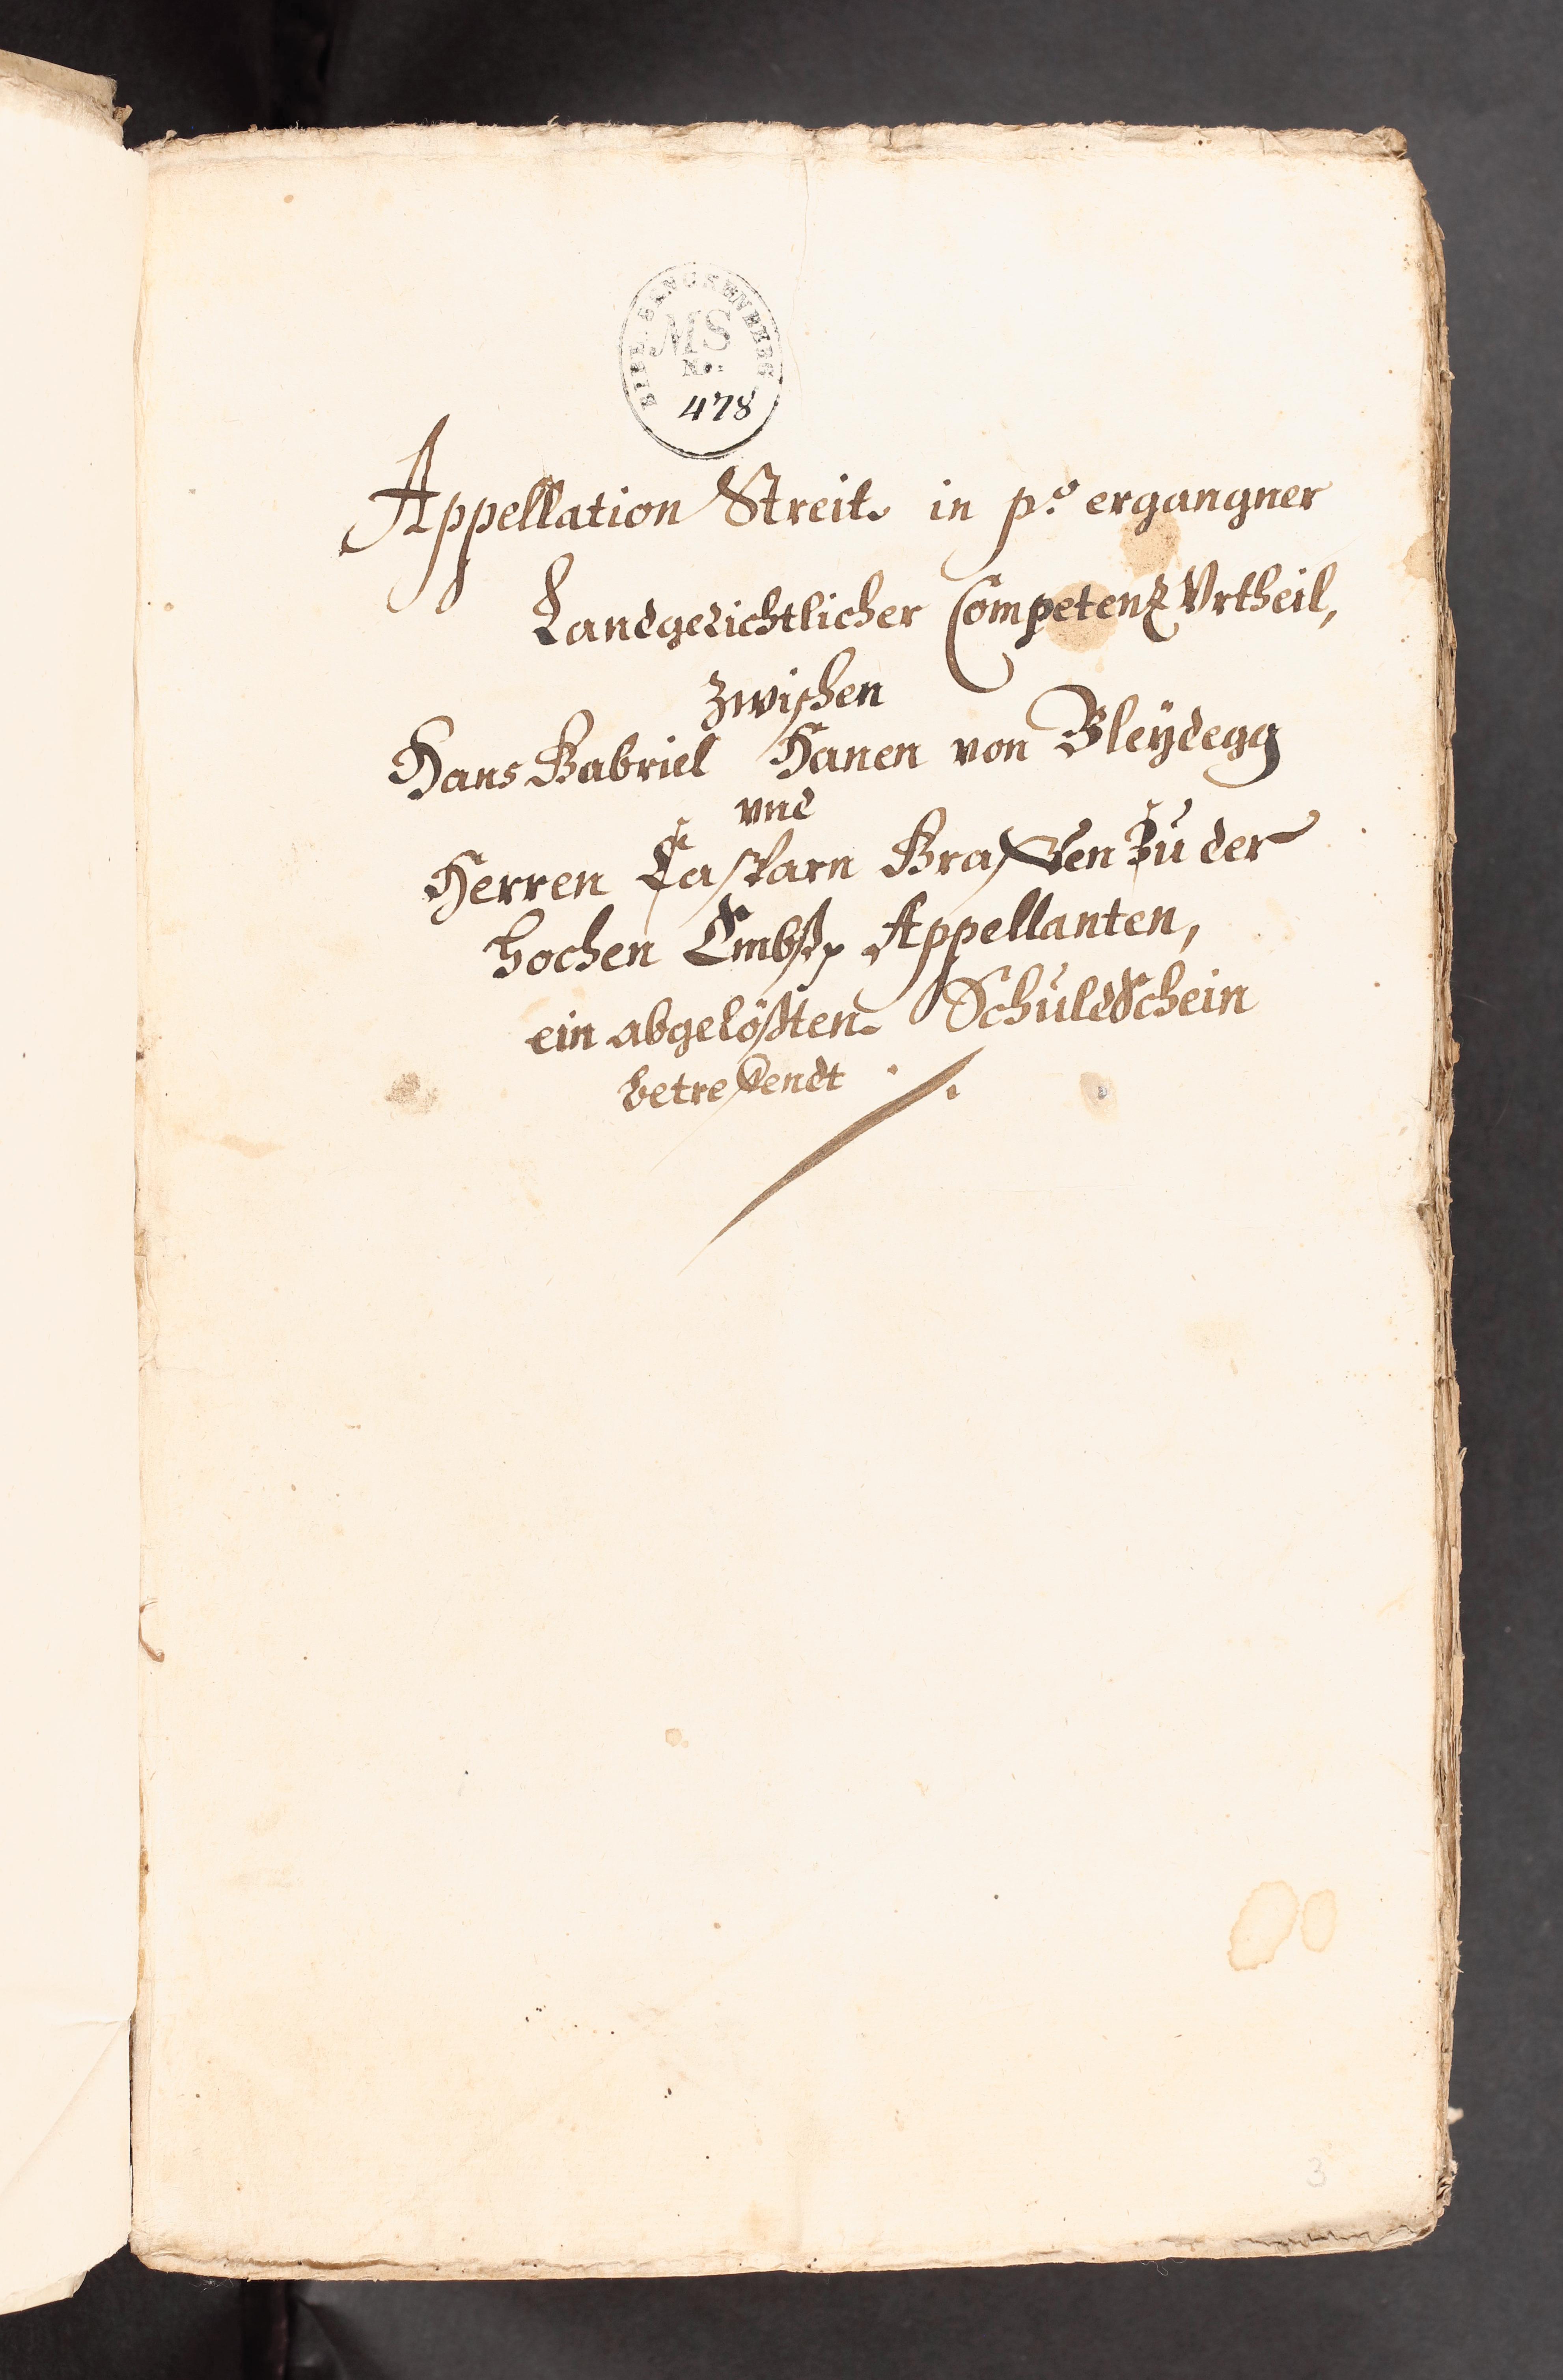 BIBL. SENCKENBERG
MS
No.
478
Appellation Streit. in p.o ergangner
Landgerichtlicher Competentz Vrtheil,
zwischen
Hans Gabriel Hanen von Bleÿdegg
vnd
Herren Casparn Graffen zu der
hochen Embß Appellanten,
ein abgelößten Schuldschein
betreffendt ./.
3